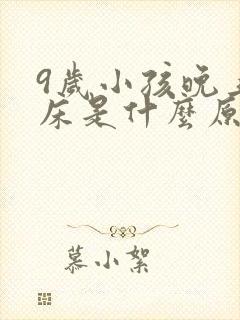 9歲小孩晚
床是什麼原
慕小絮